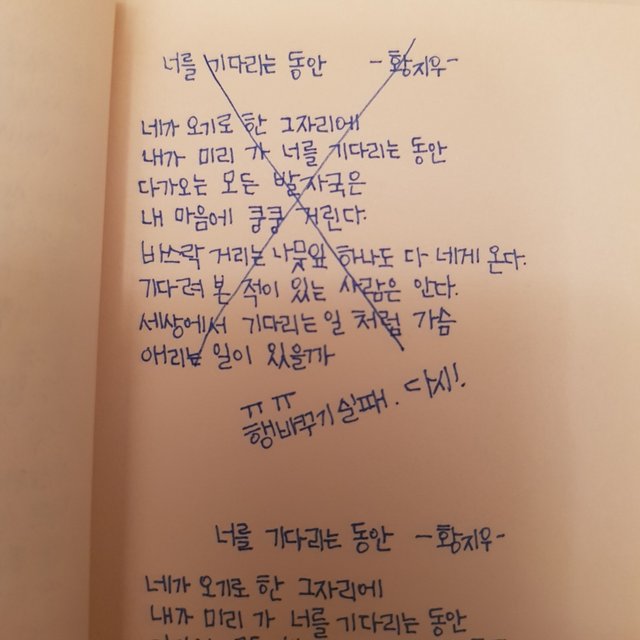 너를 기다리는 동안 -황지우-
네가 오기로 한 그자리에
내가 미리 가 너를 기다리는 동안
다가오는 모든 발자국은
내 마음에 쿵쿵 거린다.
바스락 거리는 나뭇잎 하나도 다 네게 온다.
기다려 본 적이 있는 사람은 안다.
세상에서 기다리는 일 처럼 가슴
애리는 일이 있을까
ㅠㅠ
행바꾸기 실패. 다시!
너를 기다리는 동안 -황지우-
네가 오기로 한 그자리에
내가 미리 가 너를 기다리는 동안